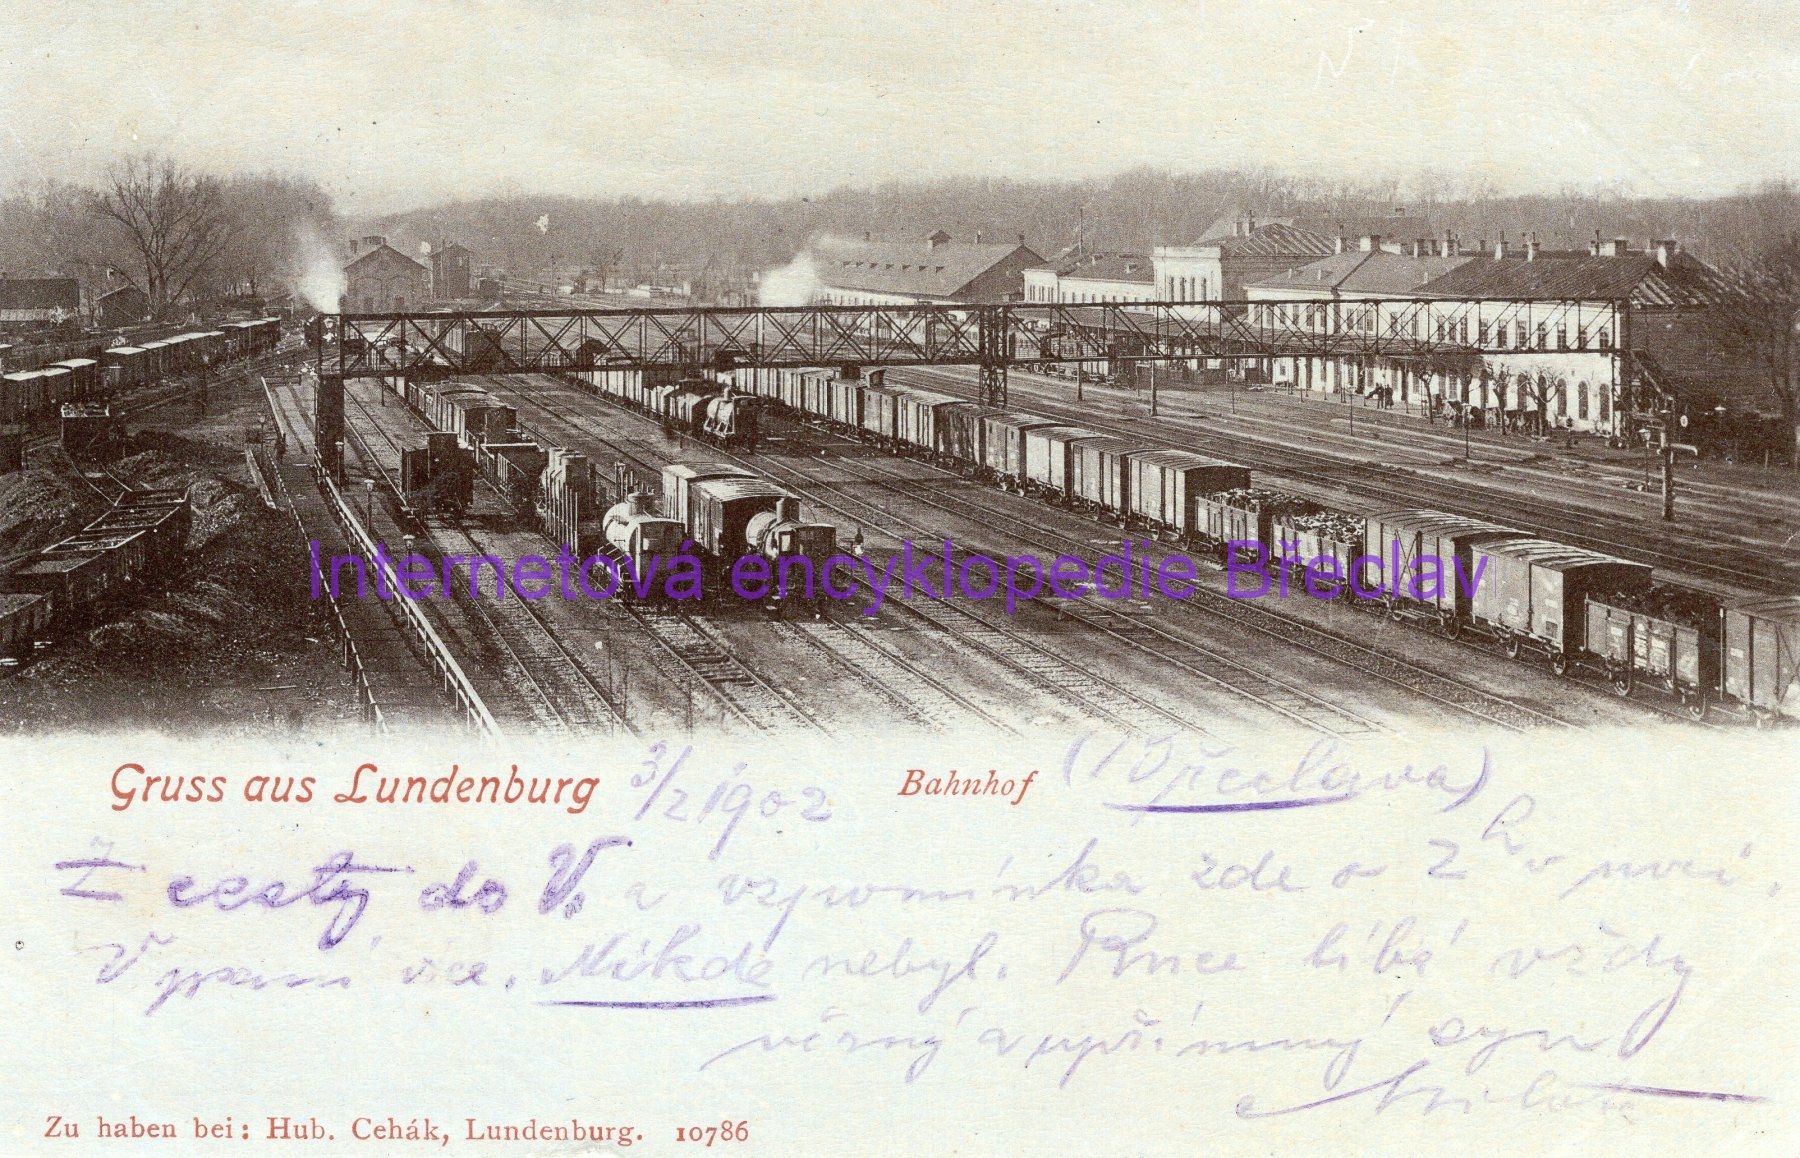 Internetová encyklopedie Břeclav
Gruss aus Lundenburg 3/2 1902 Bahnhof (Břeclava)
Z cesty do V. a vzpomínka zde o 2 v noci.
V psaní více. Nikde nebyl. Ruce líbá vždy
věrný a upřímný syn
Zu haben bei: Hub. Cehák, Lundenburg. 10786